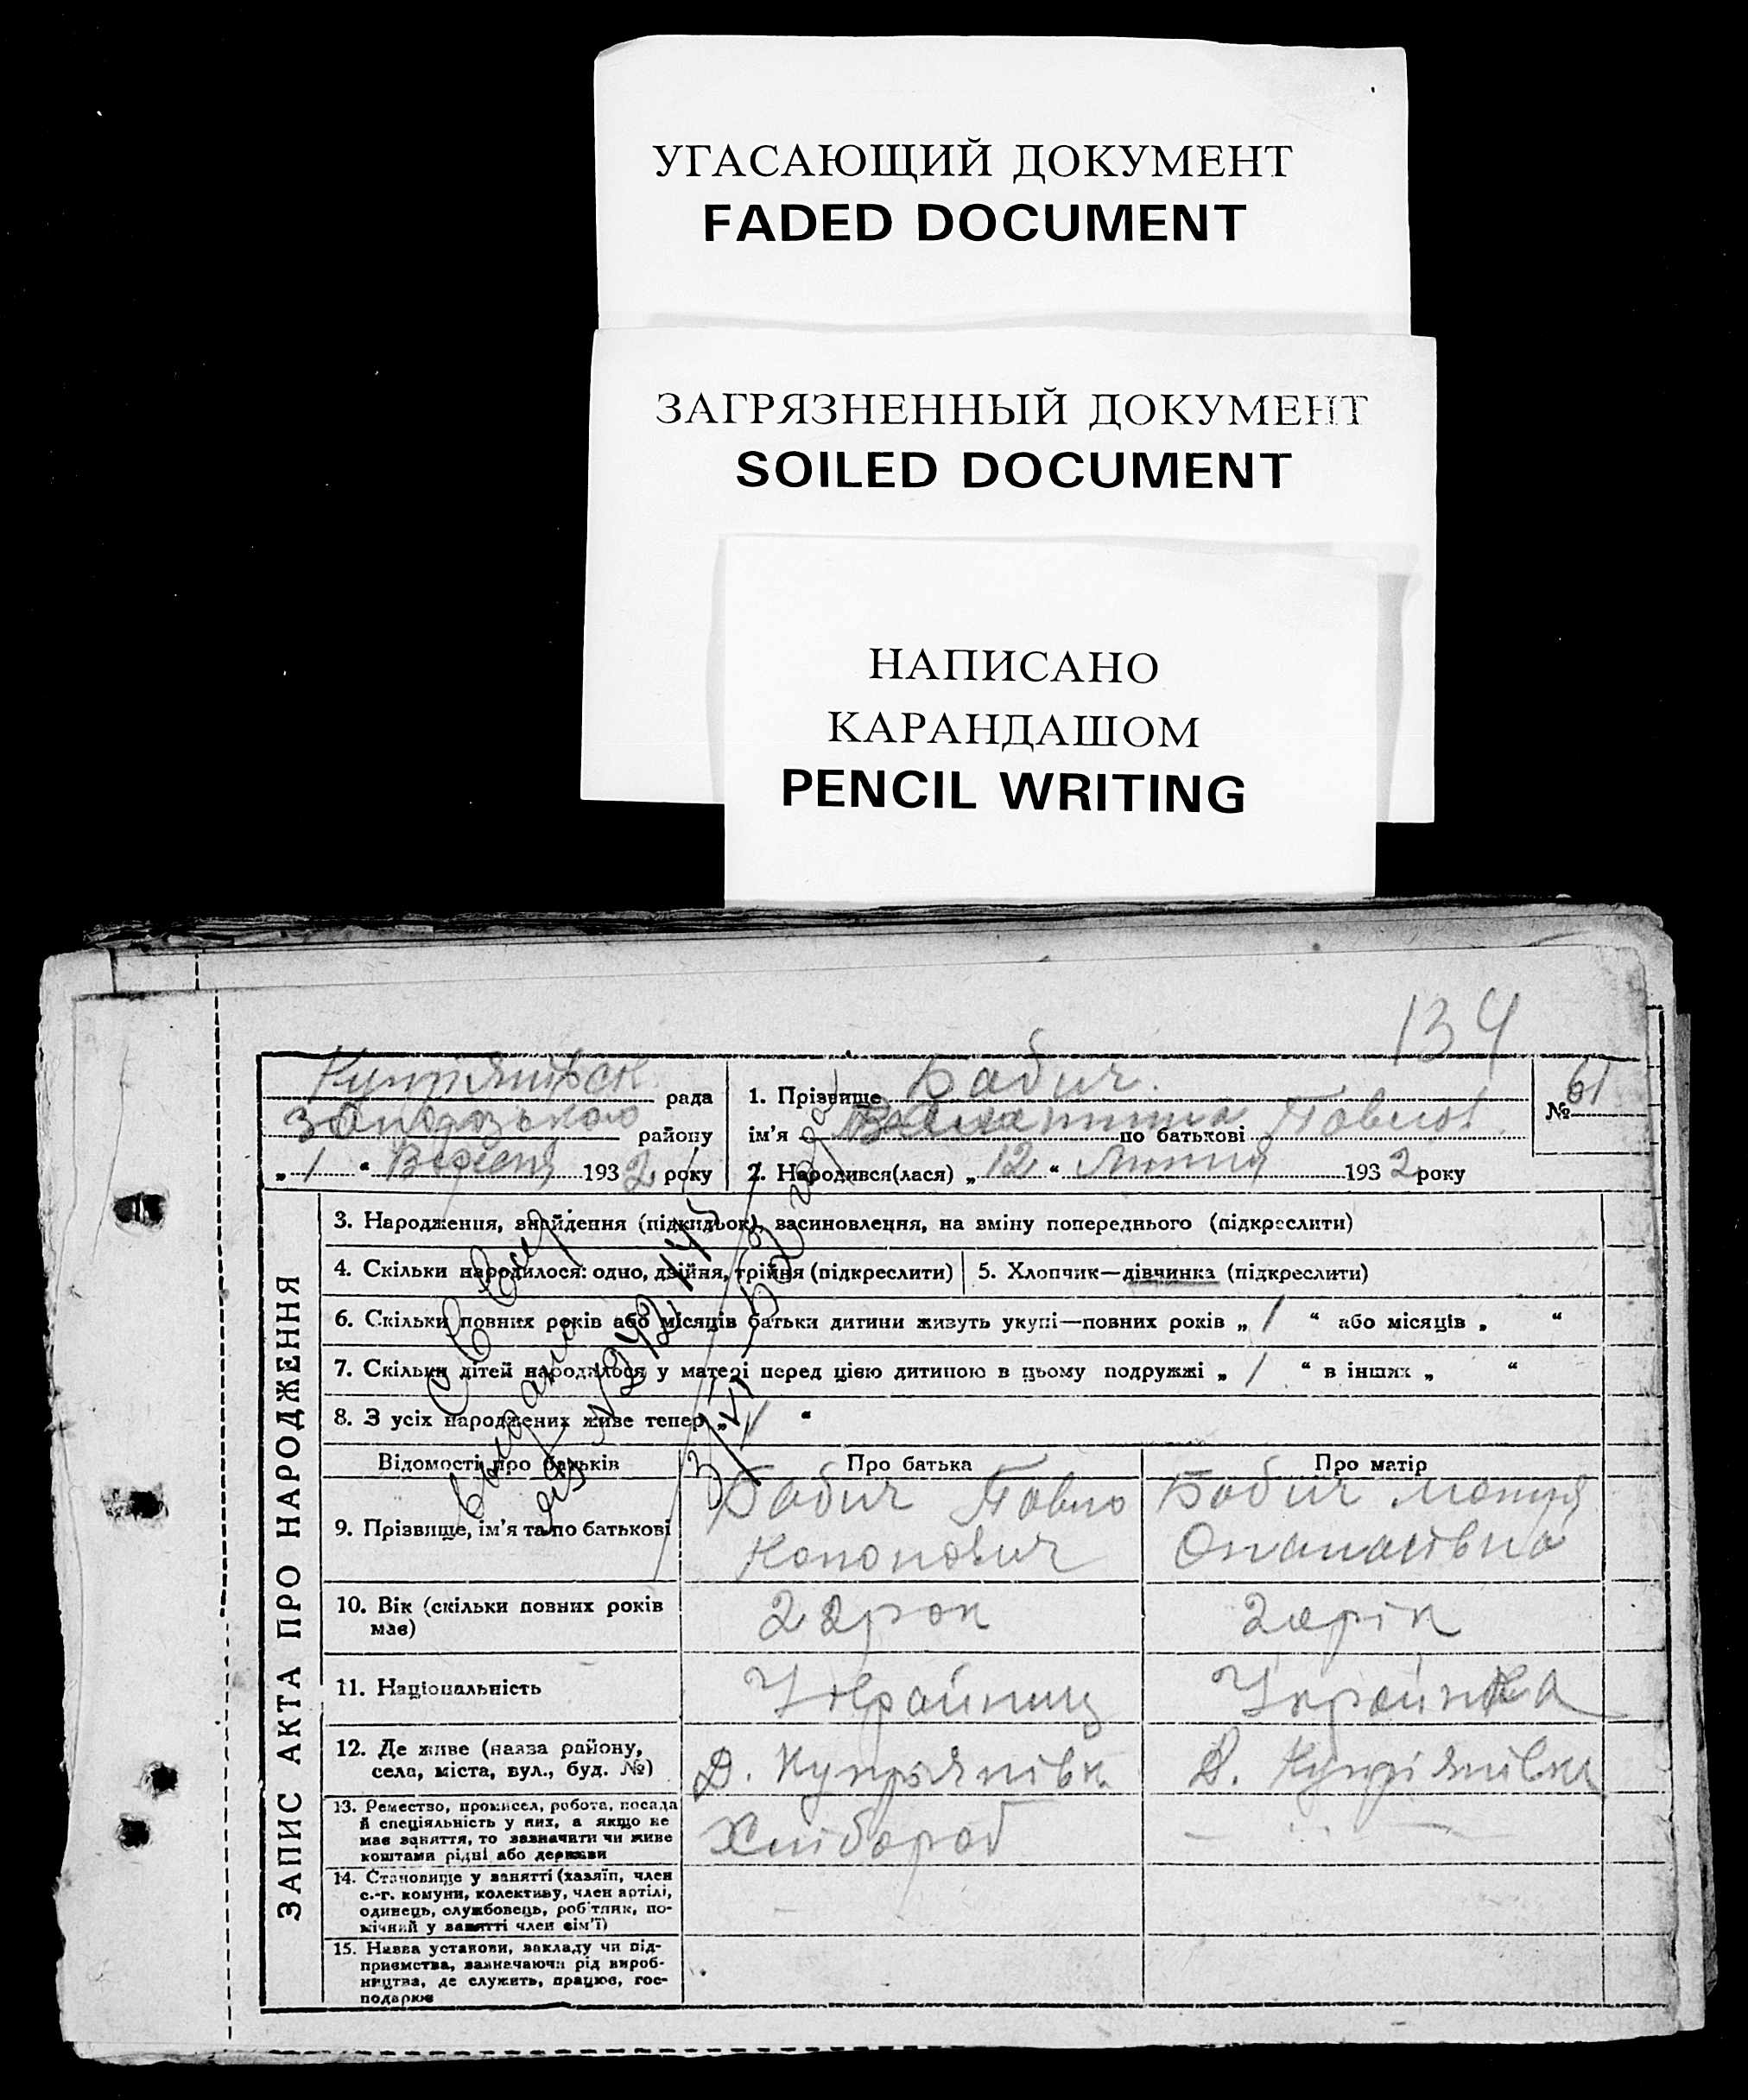 УГАСАЮЩИЙ ДОКУМЕНТ
FADED DOCUMENT
ЗАГРЯЗНЕННЫЙ ДОКУМЕНТ
SOILED DOCUMENT
НАПИСАНО
КАРАНДАШОМ
PENCIL WRITING
134
ЗАПИС АКТА ПРО НАРОДЖЕННЯ
рада
району
„ 1 “ Вересня 1932 року
1. Прізвище Бабич.
ім'я Валентина по батькові Павлов
2. Народився(лася) „ 12 “ Липня 1932 року
№ 61
3. Народження, знайдення (підкидьок), засиновлення, на зміну попереднього (підкреслити)
4. Скільки народилося: одно, двійня, трійня (підкреслити)
5. Хлопчик—дівчинка (підкреслити)
6. Скільки повних років або місяців батьки дитини живуть укупі—повних років „ 1 “ або місяців „ “
7. Скільки дітей народилося у матері перед цією дитиною в цьому подружжі „ 1 “ в інших „ “
8. З усіх народжених живе тепер „ 1 “
Відомості про батьків
Про батька
Про матір
9. Прізвище, ім'я та по батькові
Бабич Павло
Кононович
Бабич
Опанасівна
10. Вік (скільки повних років
має)
22 рок
рік
11. Національність
Украйниц
Украйнка
12. Де живе (назва району,
села, міста, вул., буд. №)
Д. Купрьянівк
Д. Купріянівка
13. Ремество, промисел, робота, посада
й спеціяльність у них, а якщо не
має заняття, то зазначити чи живе
коштами рідні або держави
Хлібороб
14. Становище у занятті (хазяїн, член
с.-г. комуни, колективу, член артілі,
одинець, службовець, роб'тник, по-
мічний у занятті член сім'ї)
15. Назва установи, закладу чи під-
приємства, зазначаючи рід вироб-
ництва, де служить, працює, гос-
подарює